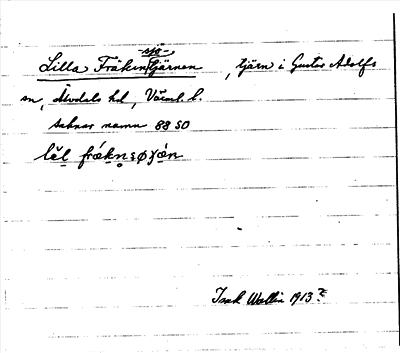 -sjö-
Lilla Fräkentjärnen, tjärn i Gustav Adolfs
sn, Älvdals hd, Värml. l.
saknar namn 88 SO
Isak Wallin 1913